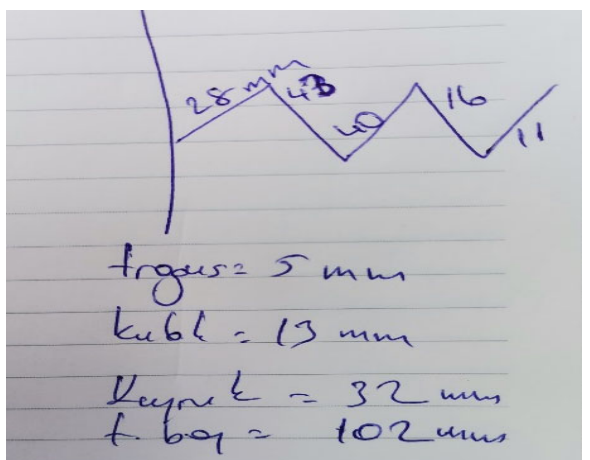 28 mm 43 40 16 11
trgus = 5 mm
kubk = 13 mm
Kuyruk = 32 mm
t. boy = 102 mm